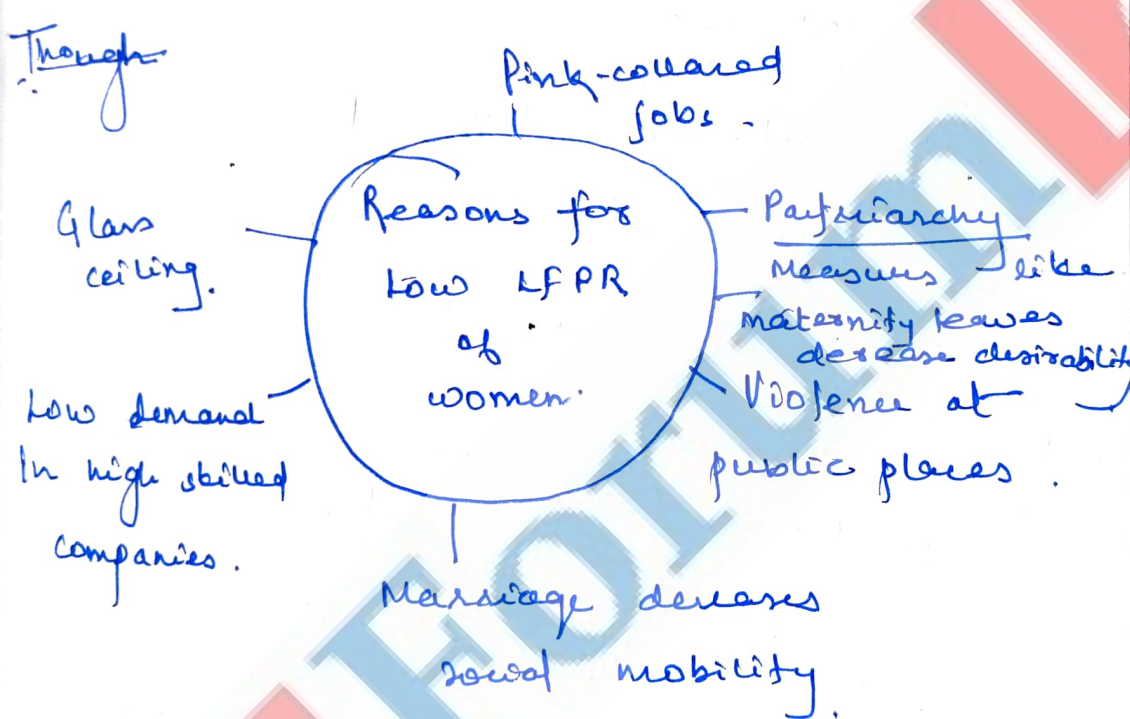 Though
Pink-collared
jobs.
Reasons for
Low LFPR
of
women.
Glass
ceiling.
Patriarchy
Measures like
maternity leaves
decrease desirability
Violence at
public places.
Low demand
In high skilled
companies.
Marriage decreases
social mobility.
Forum